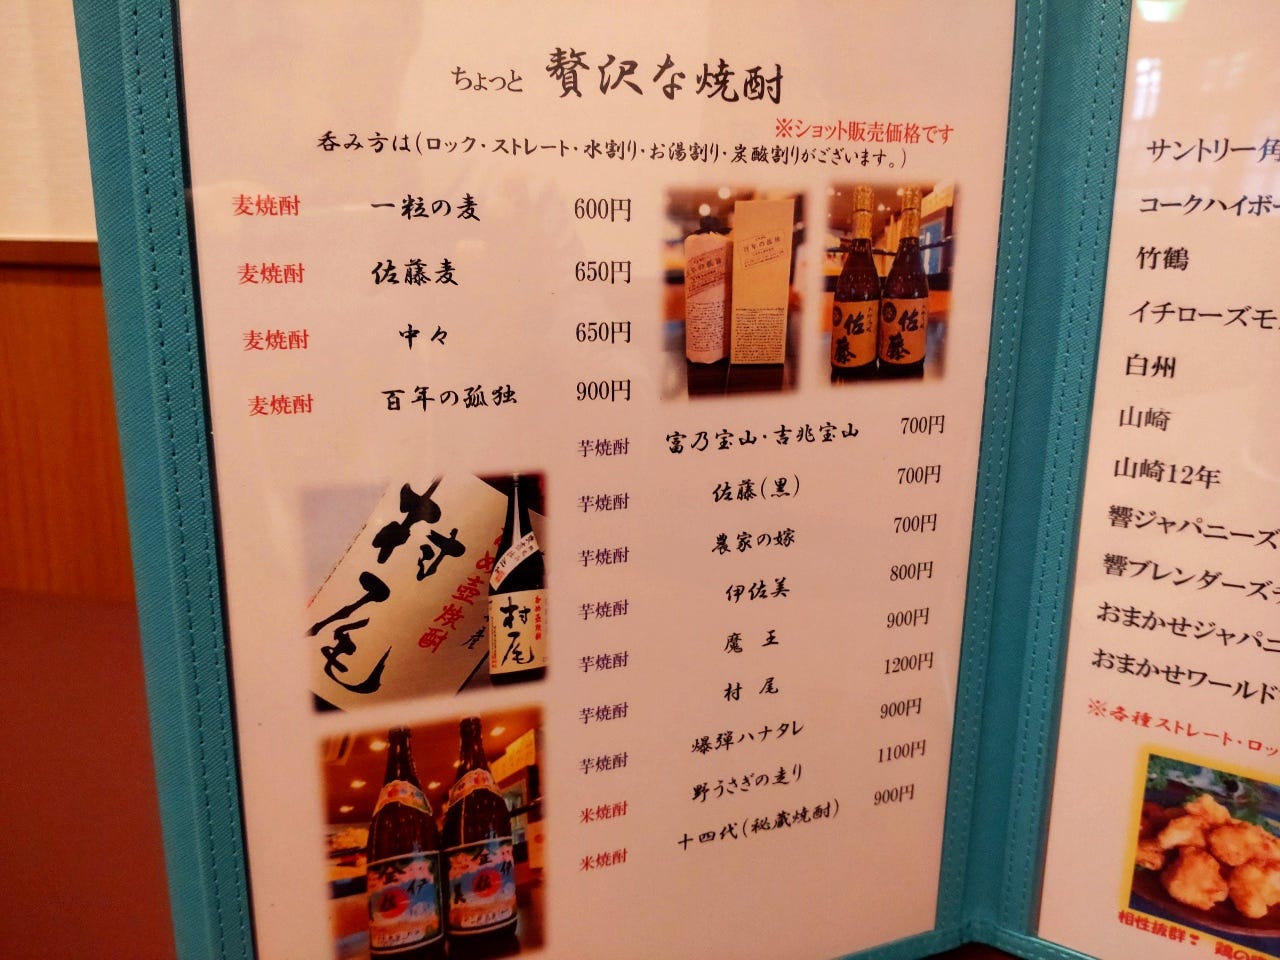 ちょっと 贅沢な焼酎
※ショット販売価格です
呑み方は(ロック・ストレート・水割り・お湯割り・炭酸割りがございます。)
麦焼酎 一粒の麦 600円
麦焼酎 佐藤麦 650円
麦焼酎 中々 650円
麦焼酎 百年の孤独 900円
芋焼酎 富乃宝山・吉兆宝山 700円
芋焼酎 佐藤(黒) 700円
芋焼酎 農家の嫁 700円
芋焼酎 伊佐美 800円
芋焼酎 魔王 900円
芋焼酎 村尾 1200円
芋焼酎 爆弾ハナタレ 900円
米焼酎 野うさぎの走り 1100円
米焼酎 十四代(秘蔵焼酎) 900円
百年の孤独
佐藤
佐藤
村尾
壺焼酎
村尾
サントリー角
コークハイボー
竹鶴
イチローズモ
白州
山崎
山崎12年
響ジャパニーズ
響ブレンダーズ
おまかせジャパニ
おまかせワールド
※各種ストレート・ロッ
相性抜群： 鶏の